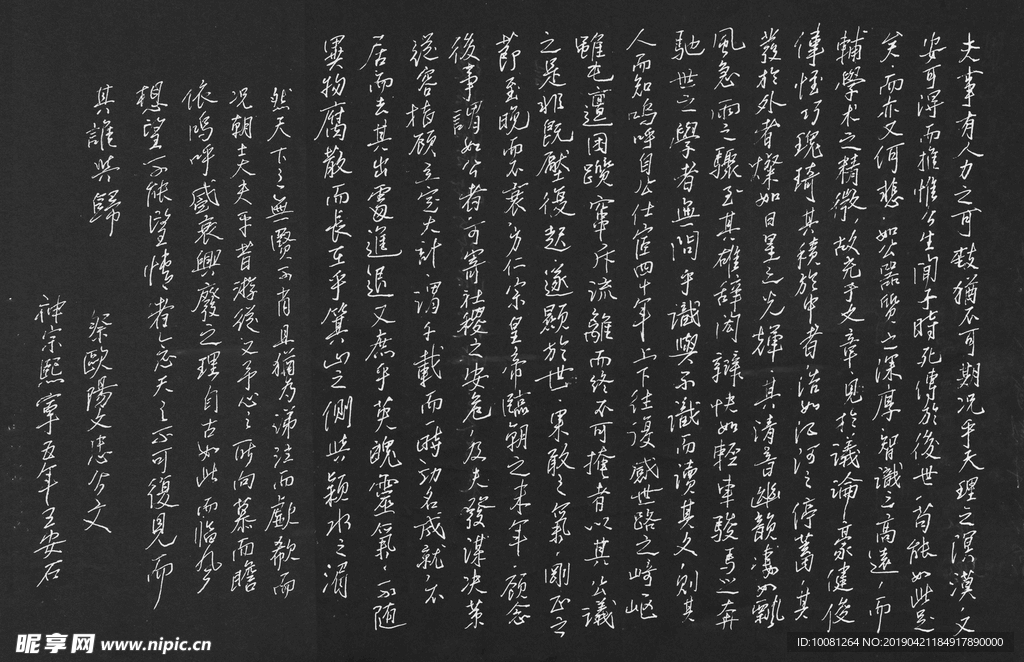 夫事有人力之可致猶不可期況乎天理之溟漠又
安可得而推惟公生有聞于時死有傳於後世苟能如此足
矣而亦又何悲如公器質之深厚智識之高遠而
輔學术之精微故充于文章見於議論豪健俊
偉怪巧瑰琦其積於中者浩如江河之停蓄其
發於外者燦如日星之光輝其清音幽韻淒如飄
風急雨之驟至其雄辭閎辯快如輕車駿馬之奔
馳世之學者無問乎識與不識而讀其文則其
人而知嗚呼自公仕宦四十年上下往復感世路之崎岖
雖屯邅困躓竄斥流離而終不可掩者以其公議
之是非既壓復起遂顯於世果敢之氣剛正之
節至晚而不衰方仁宗皇帝臨朝之末年顧念
後事謂如公者可寄社稷之安危及夫發謀決策
從容指顧立定大計謂千載而一時功名成就不
居而去其出處進退又庶乎英魄靈氣不随
異物腐散而長在乎箕山之側與颖水之湄
然天下之無賢不肖且猶為涕泣而歔欷而
況朝士大夫平昔游從又予心之所向慕而瞻
依嗚呼盛衰興廢之理自古如此而臨風
想望不能忘情者念公之不可復見而
其誰與歸
祭歐陽文忠公文
神宗熙寧五年王安石
昵享网 www.nipic.cn
ID:10081264 NO:20190421184917890000